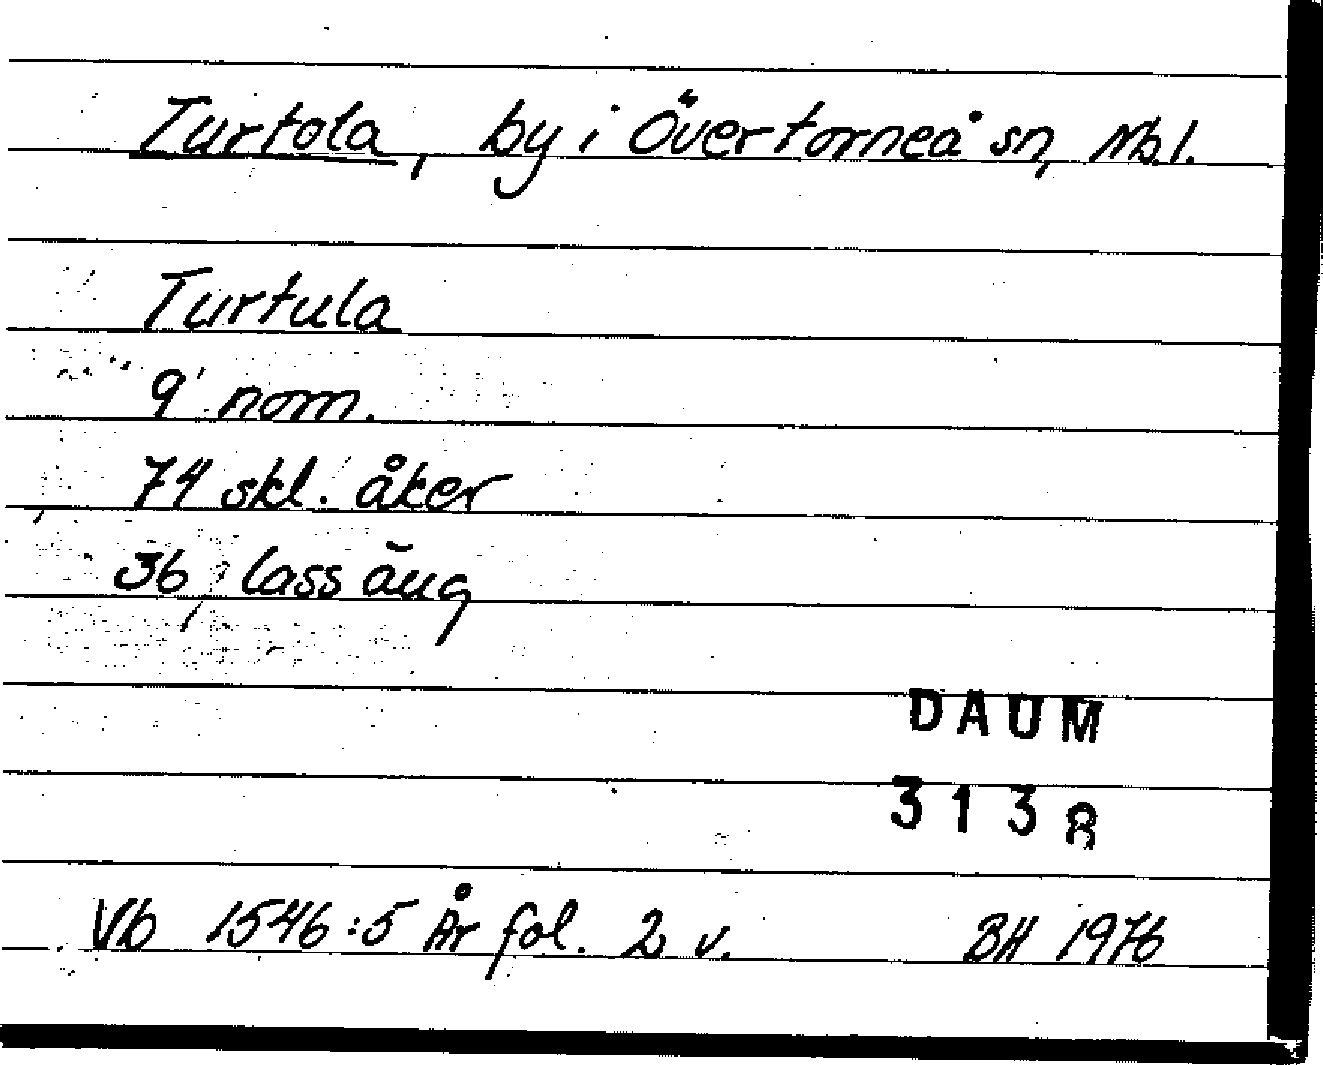 Turtola, by i Övertorneå sn, Nb.l.
Turtula
9 nom.
74 skl. åker
36 lass äng
DAUM
3138
Vb 1546:5 År fol. 2 v. BH 1976